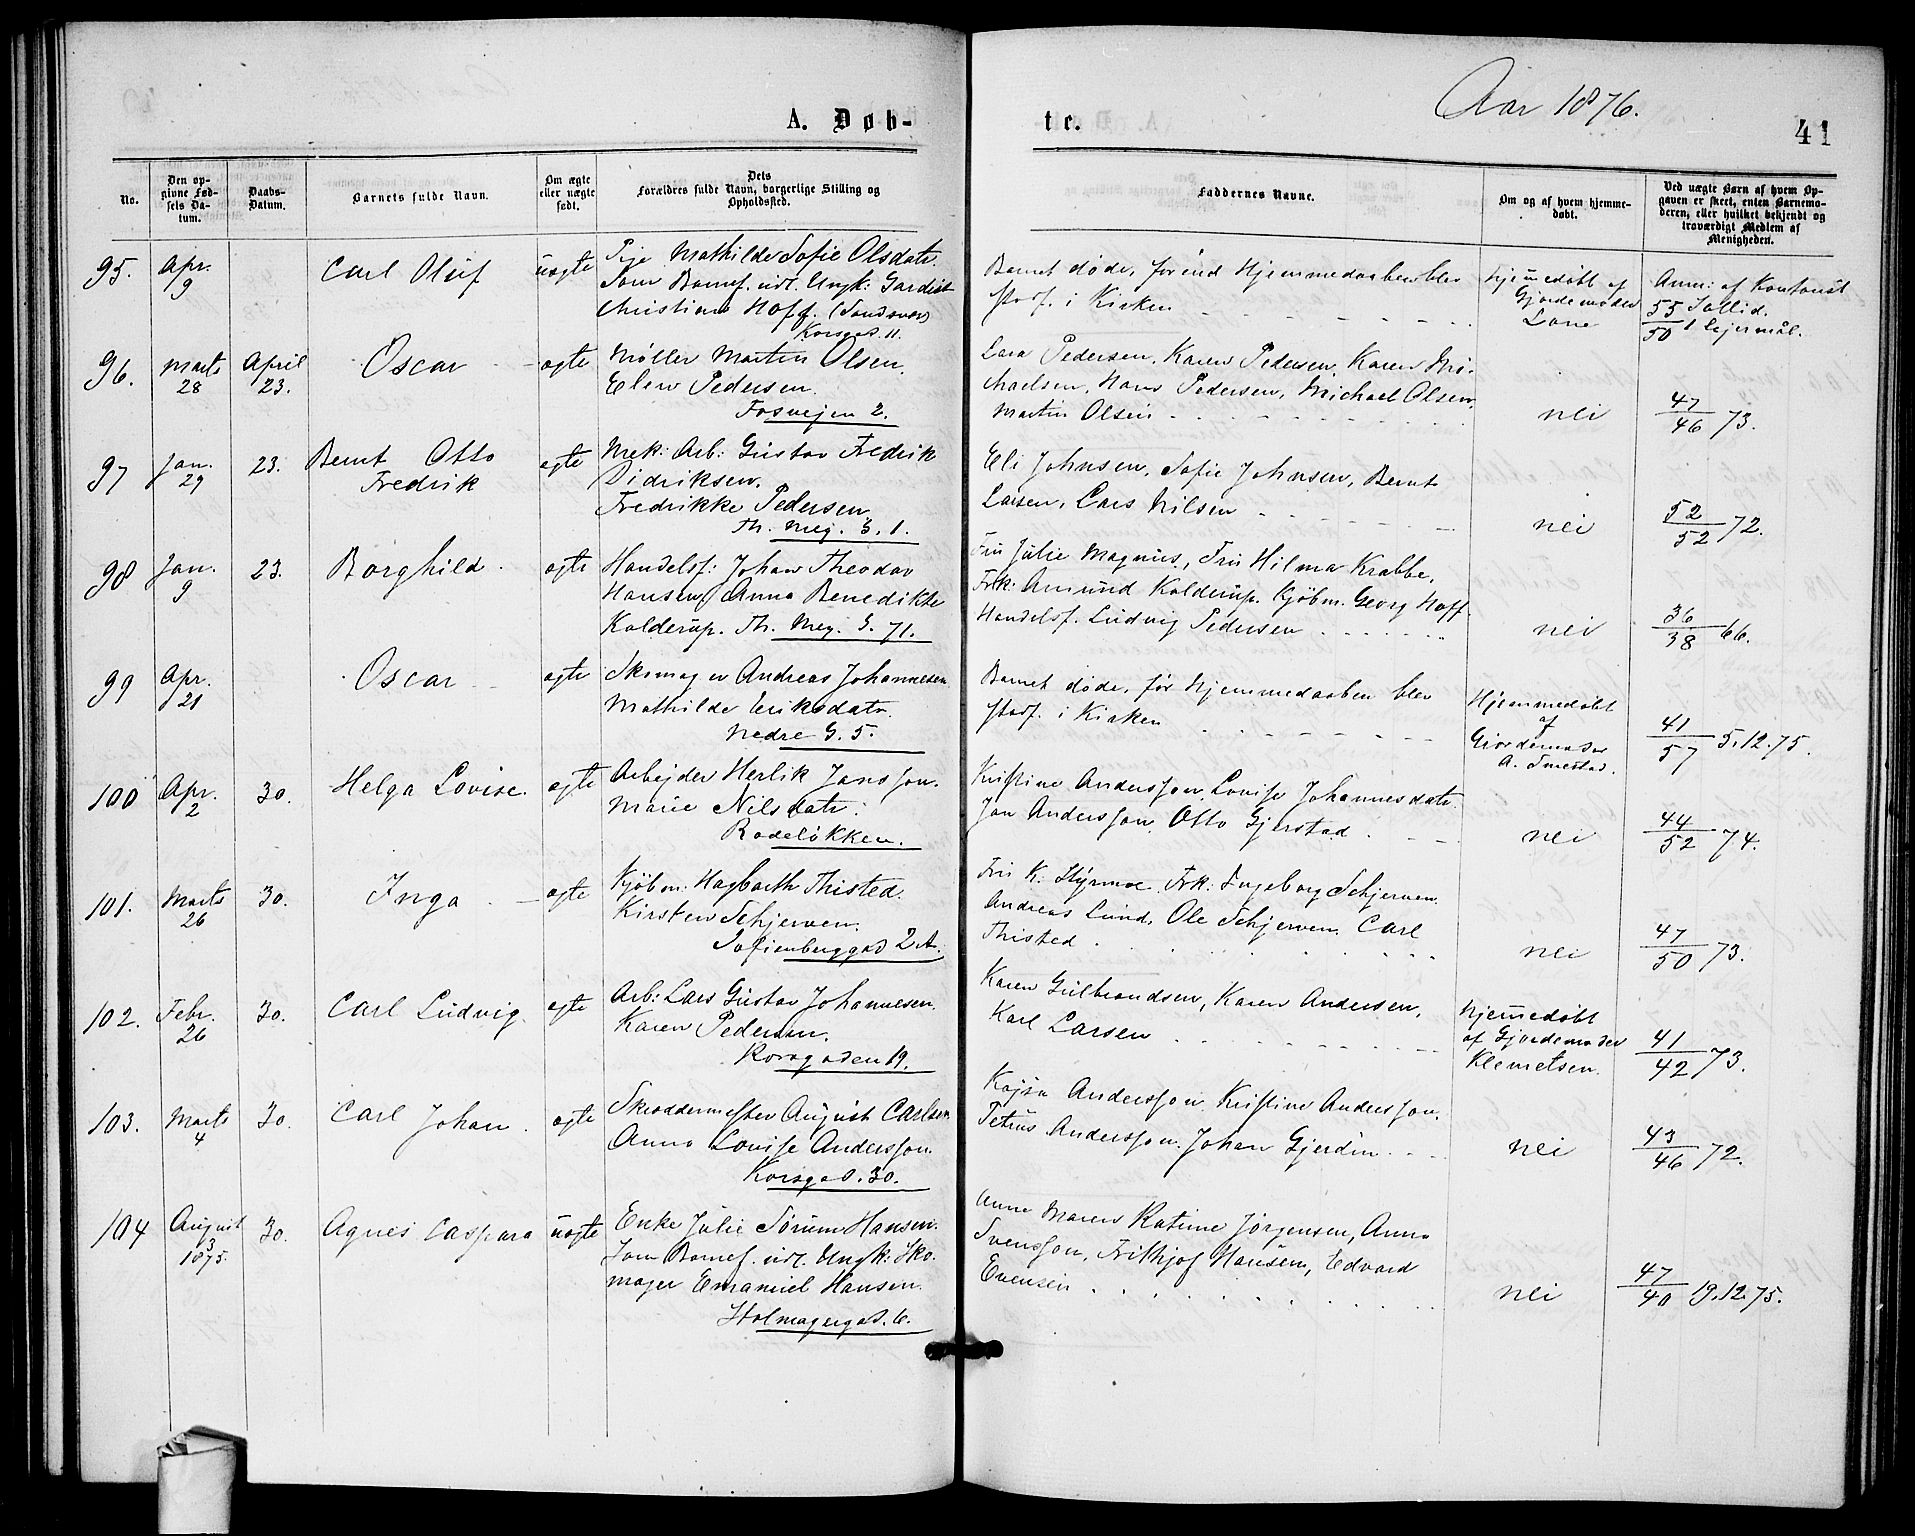 Aar 1876.
A. Døb-
te.
41
No.
Den op-
givne Fød-
sels Da-
tum.
Daabs-
Datum.
Barnets fulde Navn.
Om ægte
eller uægte
født.
Dets
Forældres fulde Navn, borgerlige Stilling og
Opholdssted.
Faddernes Navne.
Om og af hvem hjemme-
døbt.
Ved uægte Børn af hvem Op-
gaven er skeet, enten Barnemo-
deren, eller hvilket bekjendt og
troværdigt Medlem af
Menigheden.
95.
Apr.
9
Carl Oluf
uægte
Pige Mathilde Sofie Olsdatr.
Som Barnef. udl. Ungk: Gardist
Christian Hoff. (Sandsvær)
Korsgad. 11.
Barnet døde, førend Hjemmedaaben blev
stadf. i Kirken
Hjemmedøbt af
Gjordemoder
Lane
Anm: af Kontorist
55
50 1 Lejermål.
96.
Marts
28
April
23.
Oscar
ægte
Møller Martin Olsen.
Elen Pedersen.
Fosvejen 2.
Lara Pedersen, Karen Pedersen, Karen Mi-
chaelsen, Hans Pedersen, Michael Olsen,
Martin Olsen
nei
47
46 73.
97
Jan.
29
23.
Bernt Otto
Fredrik
ægte
Mek: Arb: Gustav Fredrik
Didriksen.
Fredrikke Pedersen
Th. Mey. G. 1.
Eli Johnsen, Sofie Johnsen, Bernt
Larsen, Lars Nilsen
nei
52
52 72.
98
Jan.
9
23.
Borghild
ægte
Handelsf: Johan Theodor
Hansen, Anna Benedikte
Kolderup. Th. Mey. G. 71.
Fru Julie Magnus, Fru Hilma Krabbe,
Frk: Amund Kolderup. Kjøbm. Georg Hoff
Handelsf. Ludvig Pedersen
nei
36
38 66.
99
Apr.
21
Oscar
ægte
Skomager Andreas Johannesen
Mathilde Eriksdatr.
Nedre G. 5.
Barnet døde, før Hjemmedaaben blev
stadf. i Kirken
Hjemmedøbt
af
Gjordemoder
A. Smestad.
41
57 5.12.75.
100
Apr.
2
30.
Helga Lovise.
ægte
Arbejder Herlik Jansson.
Marie Nilsdatr:
Rodeløkken.
Kristine Andersson, Lovise Johannesdatr.
Jan Andersson, Otto Gjerstad.
nei
44
52 74.
101.
Marts
26
30.
Inga
ægte
Kjøbm: Hagbarth Thisted.
Kirsten Schjerven.
Sofienberggad 2 A.
Fru K. Styrmoe. Frk: Ingeborg Schjerven.
Andreas Lund, Ole Schjerven. Carl
Thisted
nei
47
50 73.
102.
Febr.
26
30.
Carl Ludvig.
ægte
Arb: Lars Gustav Johannesen.
Karen Pedersen.
Korsgaden 19.
Karen Gulbrandsen, Karen Andersen,
Karl Larsen
Hjemmedøbt
af Gjordemoder
Klemetsen.
41
42 73.
103.
Marts
4
30.
Carl Johan.
ægte
Skræddermester August Carlsen
Anna Lovise Andersson.
Korsgad. 30.
Kajsa Andersson, Kristine Andersson.
Petrus Andersson. Johan Gjerdin
nei
43
46 72.
104
August
3
1875.
30.
Agnes Caspara
uægte
Enke Julie Sørum Hansen.
Som Barnef. udl. Ungk: Sko-
mager Emanuel Hansen.
Holmagergad. 6.
Anne Maren Katrine Jørgensen, Anna
Svensson, Frithjof Hansen, Edvard
Evensen
nei
47
40 19.12.75.